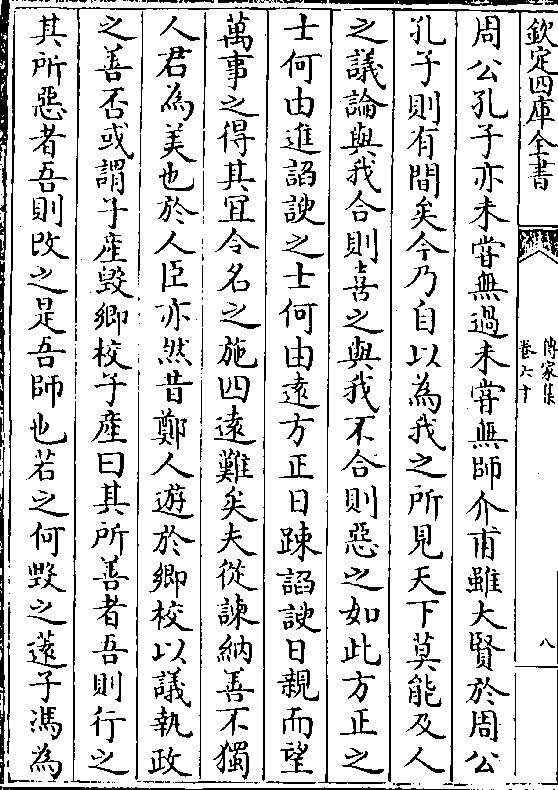 欽定四庫全書
傳家集
卷六十
八
周公孔子亦未嘗無過未嘗無師介甫雖大賢於周公
孔子則有間矣今乃自以為我之所見天下莫能及人
之議論與我合則喜之與我不合則惡之如此方正之
士何由進諂諛之士何由遠方正日踈諂諛日親而望
萬事之得其冝令名之施四遠難矣夫從諫納善不獨
人君為美也於人臣亦然昔鄭人遊於鄉校以議執政
之善否或謂子産毀鄉校子産曰其所善者吾則行之
其所惡者吾則改之是吾師也若之何毀之薳子馮為